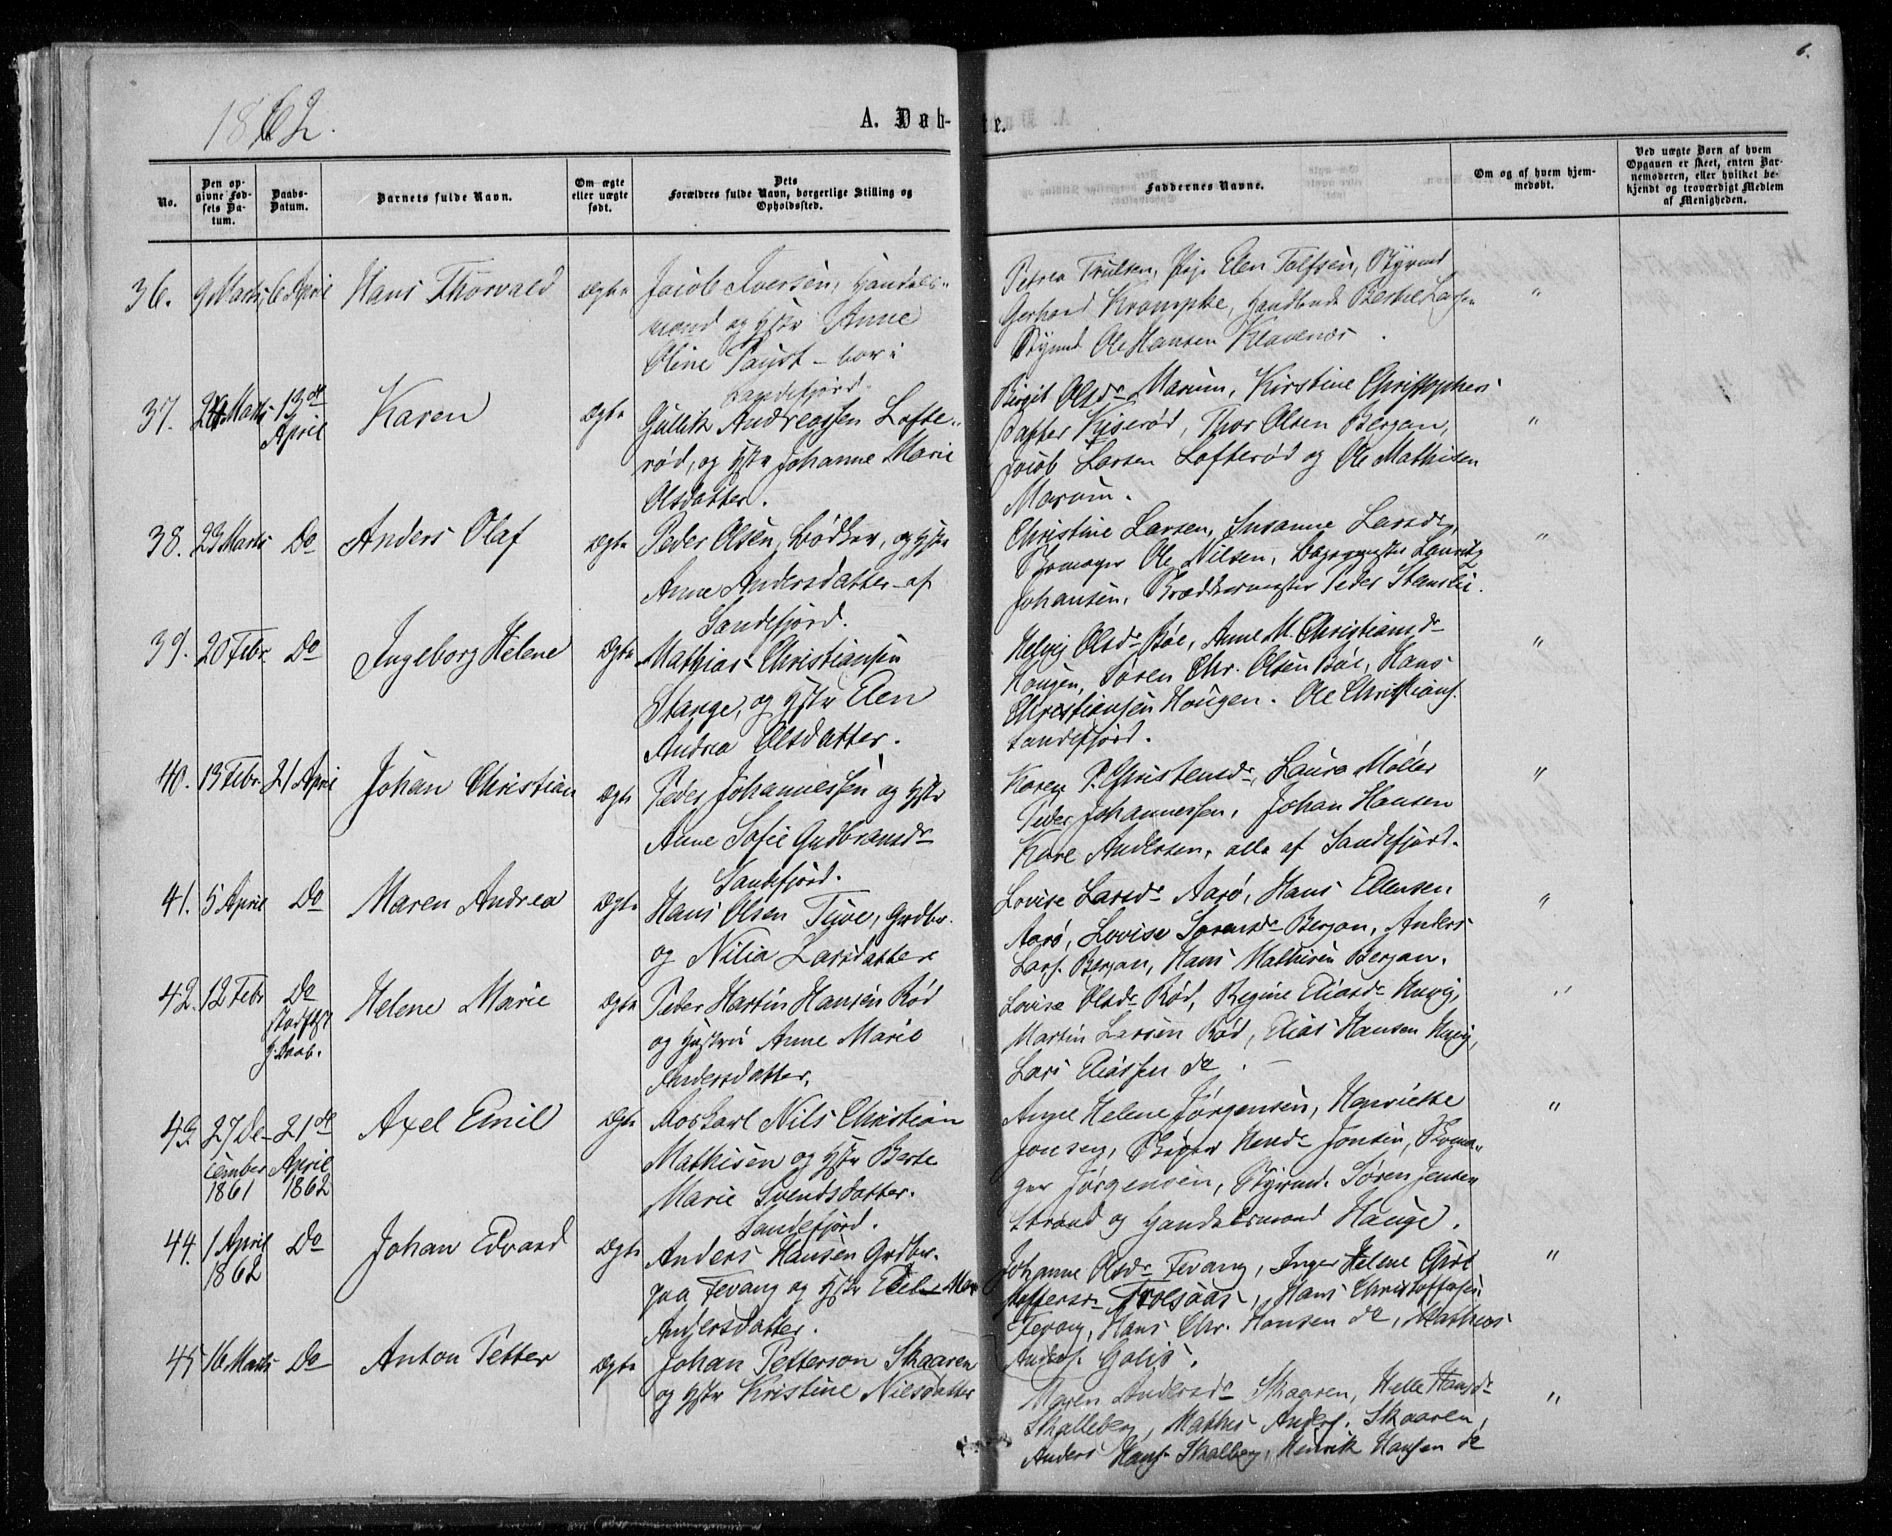 6.
1862.
A. Døb-
te.
No.
Den op-
givne Fød-
sels Da-
tum.
Daabs-
Datum.
Barnets fulde Navn.
Om ægte
eller uægte
født.
Dets
Forældres fulde Navn, borgerlige Stilling og
Opholdssted.
Faddernes Navne.
Om og af hvem hjem-
medøbt.
Ved uægte Børn af hvem
Opgaven er skeet, enten Bar-
nemoderen, eller hvilket be-
kjendt og troværdigt Medlem
af Menigheden.
36. 9 Marts 6 April Hans Thorvald Ægte
Jacob Iversen, Handels-
mand og Hstr Anne
Oline Paust - bor i
Sandefjord.
Petrea Trulsen, Pige Elen Tolfsen, Styrmd
Gerhard Krompke, Handlende Bertel Larsen
Styrmd Ole Hansen Klavenæs. "
37. Marts 13de
April
Karen Ægte
Gulik Andreassen Lofte-
rød, og Hstr Johanne Marie
Olsdatter.
Birgit Olsdr Marum, Kirstine Christophers-
datter Kiserød, Thor Olsen Bergan, "
Jacob Larsen Lofterød og Ole Mathisen
Marum.
38. 23 Marts Do Anders Olaf Ægte
Peder Olsen, Bødker, og Hstr
Anne Andersdatter - af
Sandefjord.
Christine Larsen, Susanne Larsdr,
Skomager Ole Nilsen, Bagermester Lauritz "
Johansen, Peder
39. 20 Febr. Do Ingeborg Helene Ægte
Mathias Christiansen
Stange, og Hstr Elen
Andrea Olsdatter.
Helvig Olsdr Bøe, Anne M. Christiansdr
Hougen, Søren Chr. Olsen Bøe, Hans "
Christiansen Hougen. Ole Christians.
Sandefjord.
40. 13 Febr. 21 April Johan Christian Ægte
Peder Johannessen og Hstr
Anne Sofie Gudbrandsdr
Sandefjord.
Karen P. Christensdr, Laura Møller
Peder Johannessen, Johan Hansen "
Kare Andersen, alle af Sandefjord.
41. 5 April Do Maren Andrea Ægte
Hans Olsen Tuve, Grdbr.
og Nilia Larsdatter
Lovise Larsdr Aarø, Hans Ellensen
Aarø, Lovise Sørensdr Bergan, Anders "
Lars. Bergan, Hans Mathisen Bergan.
42. 12 Febr Do
stadfst
Hj: Daab.
Helene Marie Ægte
Peder Martin Hansen Rød
og Hustru Anne Marie
Andersdatter,
Lovise Olsdr Rød, Regine Eliasdr Huvig, "
Martin Larsen Rød, Elias Hansen Huvig,
Lars Eliassen do.
43. 27 De-
cember
1861
21de
April
1862
Axel Emil Ægte
Aoskarl Nils Christian
Mathisen og Hstr Berte
Marie Svendsdatter.
Sandefjord.
Anne Helene Jørgensen, Henriette
Jonsen, Jonsen, Skoma- "
ger Jørgensen, Styrmd. Søren Jensen
Strand og Handelsmand Hauge.
44. 1 April
1862
Do Johan Edvard Ægte
Anders Hansen Grdbr.
paa Fevang og Hstr
Andersdatter.
Johanne Olsdr Fevang, Inger Helene Chri-
stoffersdr Trolsaas, Hans Christoffersen "
Fevang, Hans Chr. Hansen do, Mathias
45 16 Marts Do Anton Petter Ægte
Johan Petterson Skaaren
og Hstr Kristine Nielsdatter
Maren Andersdr Skaaren, Helle Hansdr
Skalleberg, Mathis Anders. Skaaren, "
Anders Hans. Skalberg, Henrik Hansen do